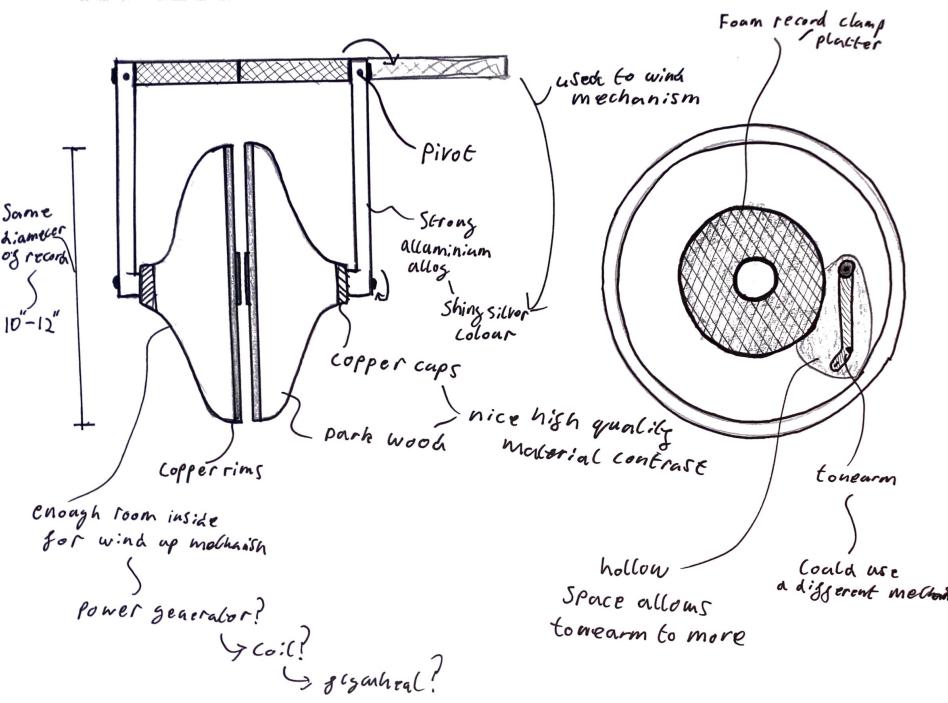 Foam record clamp
/platter
used to wind
mechanism
Pivot
Same
diameter
of record
10"-12"
Strong
alluminium
alloy
Shiny silver
colour
Copper caps
Dark wood
nice high quality
material contrast
Copper rims
enough room inside
for wind up mechanism
Power generator?
Coil?
flywheel?
tonearm
Could use
a different
hollow
Space allows
tonearm to move